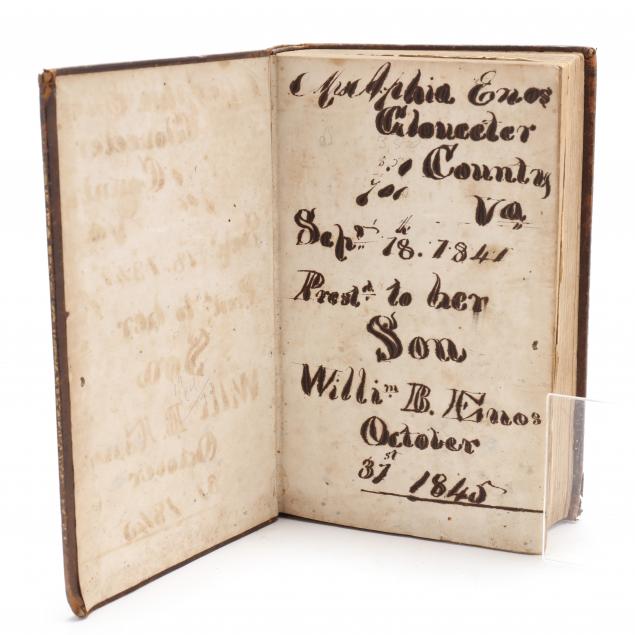 Mrs Aphia Enos
Glouceter
County
Va
Sepr. 18th. 1841
Prestd. to her
Son
Willim B. Enos
October
31st 1845